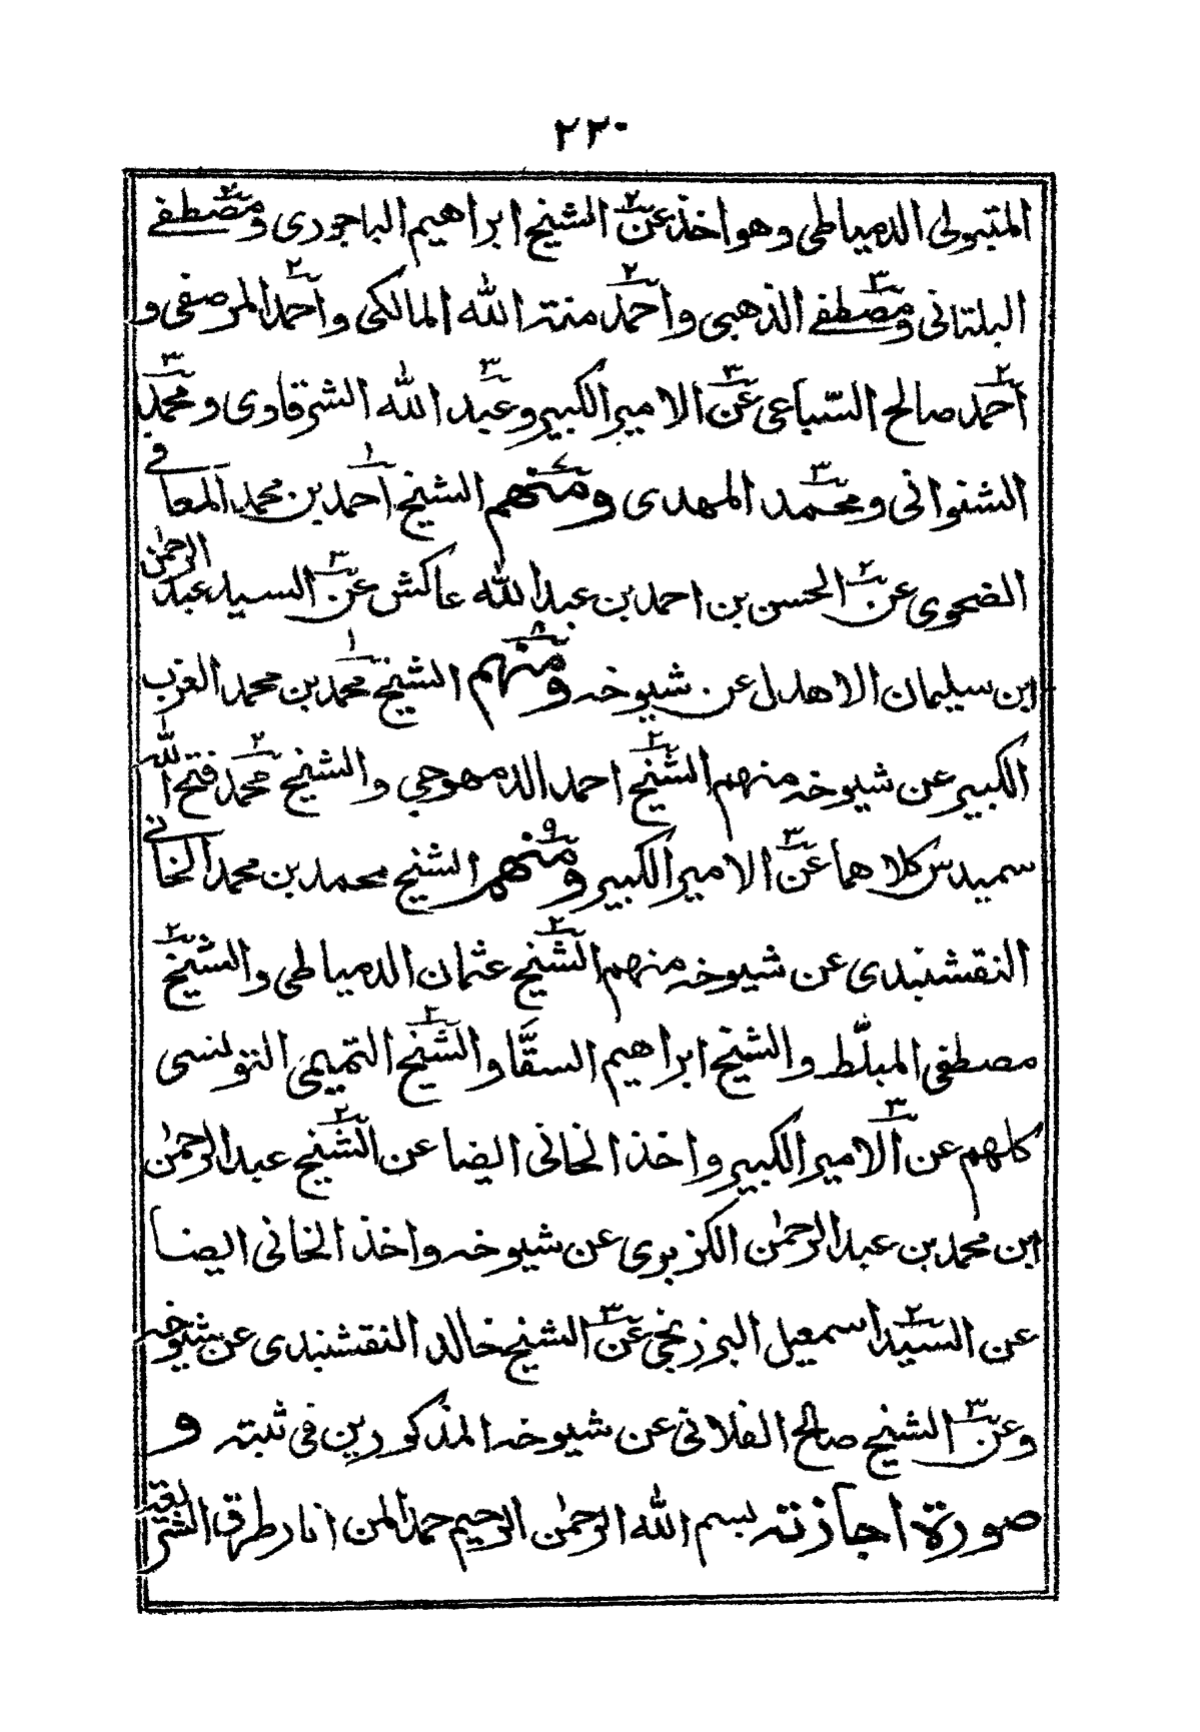 ٢٢٠
المتبولي الدمياطي وهو اخذ عن الشيخ ابراهيم الباجوري ومصطفے
البلتاني ومصطفے الذهبي واحمد منة الله المالكي واحمد المرصفي و
احمد صالح السّباعي عن الامير الكبير وعبد الله الشرقاوي ومحمد
الشنواني ومحمد المهدي ومنهم الشيخ احمد بن محمد المعافي
الضحوي عن الحسن بن احمد بن عبد الله عاكش عن السيد عبد الرحمٰن
ابن سليمان الاهدل عن شيوخه ومنهم الشيخ محمد بن محمد العزب
الكبير عن شيوخه منهم الشيخ احمد الدمهوجي والشيخ محمد فتح الله
سميدس كلاهما عن الامير الكبير ومنهم الشيخ محمد بن محمد الخاني
النقشبندي عن شيوخه منهم الشيخ عثمان الدمياطي والشيخ
مصطفي المبلّط والشيخ ابراهيم السقّا والشيخ التميمي التونسي
كلهم عن الامير الكبير واخذ الخاني ايضا عن الشيخ عبد الرحمٰن
ابن محمد بن عبد الرحمٰن الكزبري عن شيوخه واخذ الخاني ايضا
عن السيد اسمعيل البرزنجي عن الشيخ خالد النقشبندي عن شيوخه
وعن الشيخ صالح الفلاني عن شيوخه المذكورين في ثبته و
صورة اجازته بسم الله الرحمٰن الرحيم حمدا لمن انار طرق الشريعة